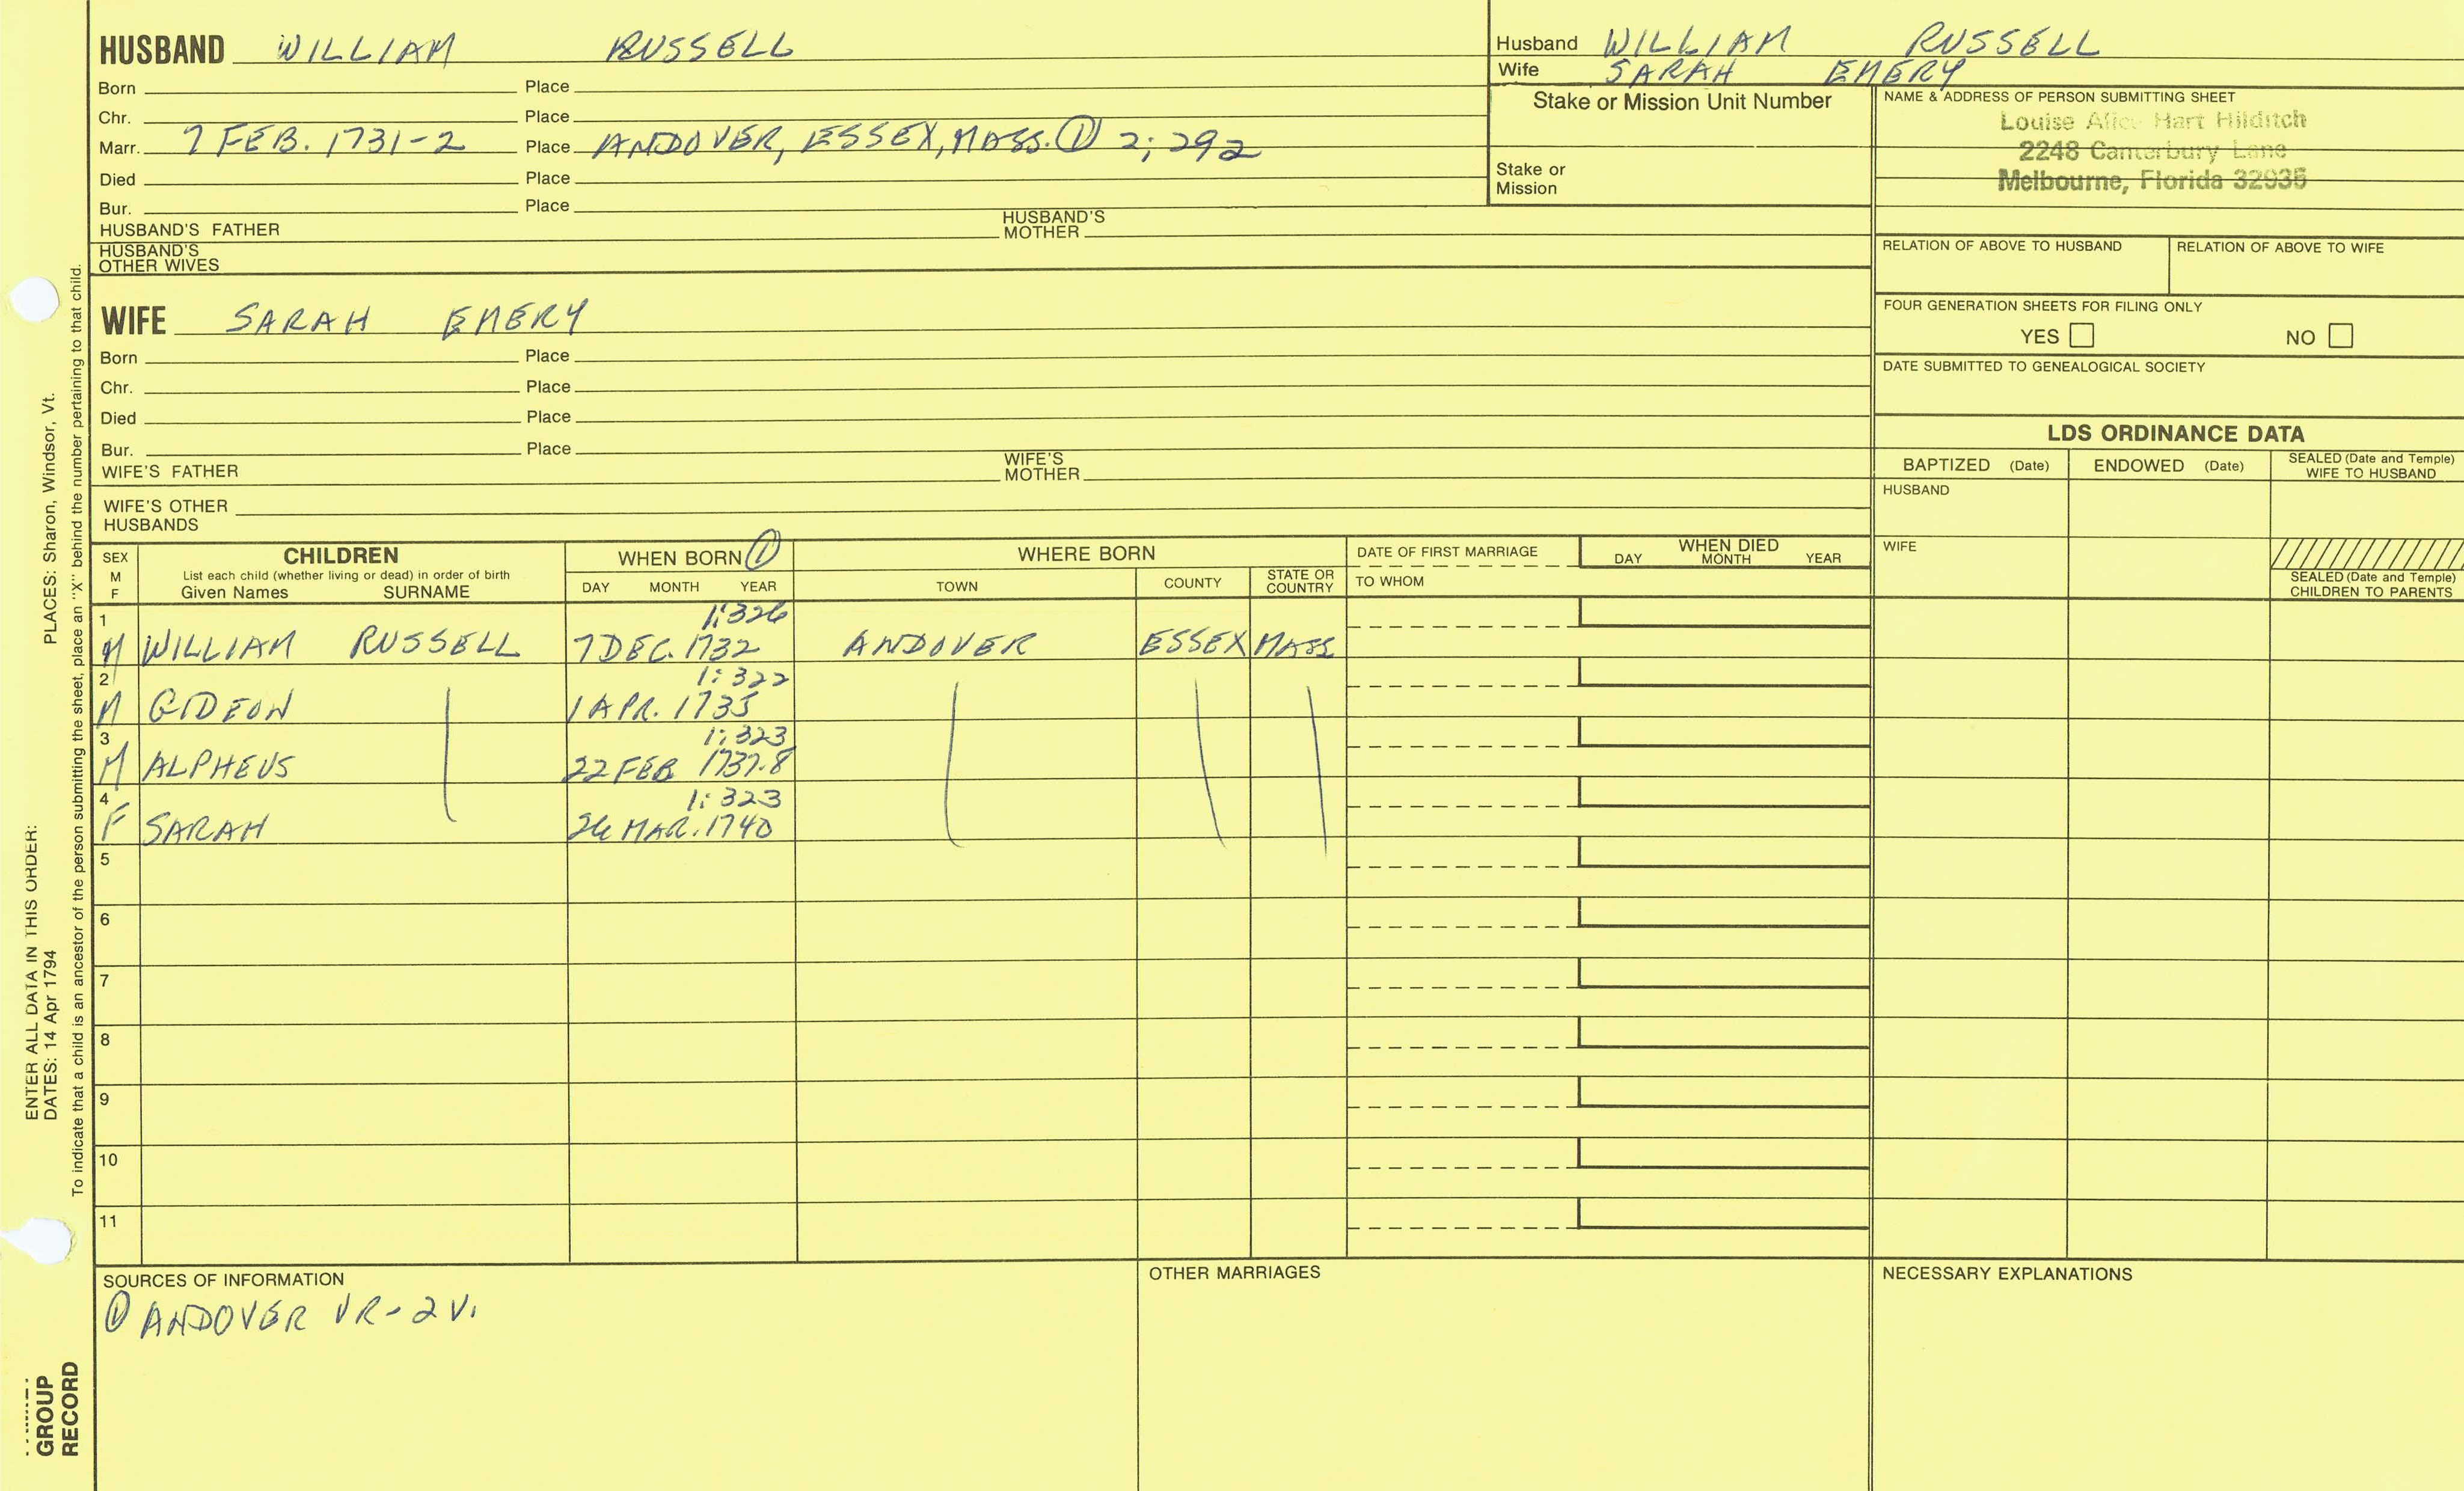 HUSBAND WILLIAM RUSSELL
Born Place
Chr. Place
Marr. 7 FEB. 1731-2 Place ANDOVER, ESSEX, MASS. ① 2; 292
Died Place
Bur. Place
HUSBAND'S FATHER HUSBAND'S MOTHER
HUSBAND'S OTHER WIVES
WIFE SARAH EMERY
Born Place
Chr. Place
Died Place
Bur. Place
WIFE'S FATHER WIFE'S MOTHER
WIFE'S OTHER HUSBANDS
Husband WILLIAM RUSSELL
Wife SARAH EMERY
Stake or Mission Unit Number
Stake or Mission
NAME & ADDRESS OF PERSON SUBMITTING SHEET
Louise Alice Hart Hilditch
2248 Canterbury Lane
Melbourne, Florida 32935
RELATION OF ABOVE TO HUSBAND RELATION OF ABOVE TO WIFE
FOUR GENERATION SHEETS FOR FILING ONLY
YES NO
DATE SUBMITTED TO GENEALOGICAL SOCIETY
LDS ORDINANCE DATA
BAPTIZED (Date) ENDOWED (Date) SEALED (Date and Temple) WIFE TO HUSBAND
HUSBAND
WIFE
SEALED (Date and Temple) CHILDREN TO PARENTS
SEX M F
CHILDREN
List each child (whether living or dead) in order of birth
Given Names SURNAME
WHEN BORN ①
DAY MONTH YEAR
WHERE BORN
TOWN COUNTY STATE OR COUNTRY
DATE OF FIRST MARRIAGE
TO WHOM
WHEN DIED
DAY MONTH YEAR
1 1:326
M WILLIAM RUSSELL 7 DEC. 1732 ANDOVER ESSEX MASS
2 1:322
M GIDEON 1 APR. 1735
3 1:323
M ALPHEUS 22 FEB 1737-8
4 1:323
F SARAH 26 MAR. 1740
5
6
7
8
9
10
11
SOURCES OF INFORMATION
① ANDOVER VR-2 V.
OTHER MARRIAGES
NECESSARY EXPLANATIONS
ENTER ALL DATA IN THIS ORDER:
DATES: 14 Apr 1794 PLACES: Sharon, Windsor, Vt.
To indicate that a child is an ancestor of the person submitting the sheet, place an "X" behind the number pertaining to that child.
GROUP
RECORD